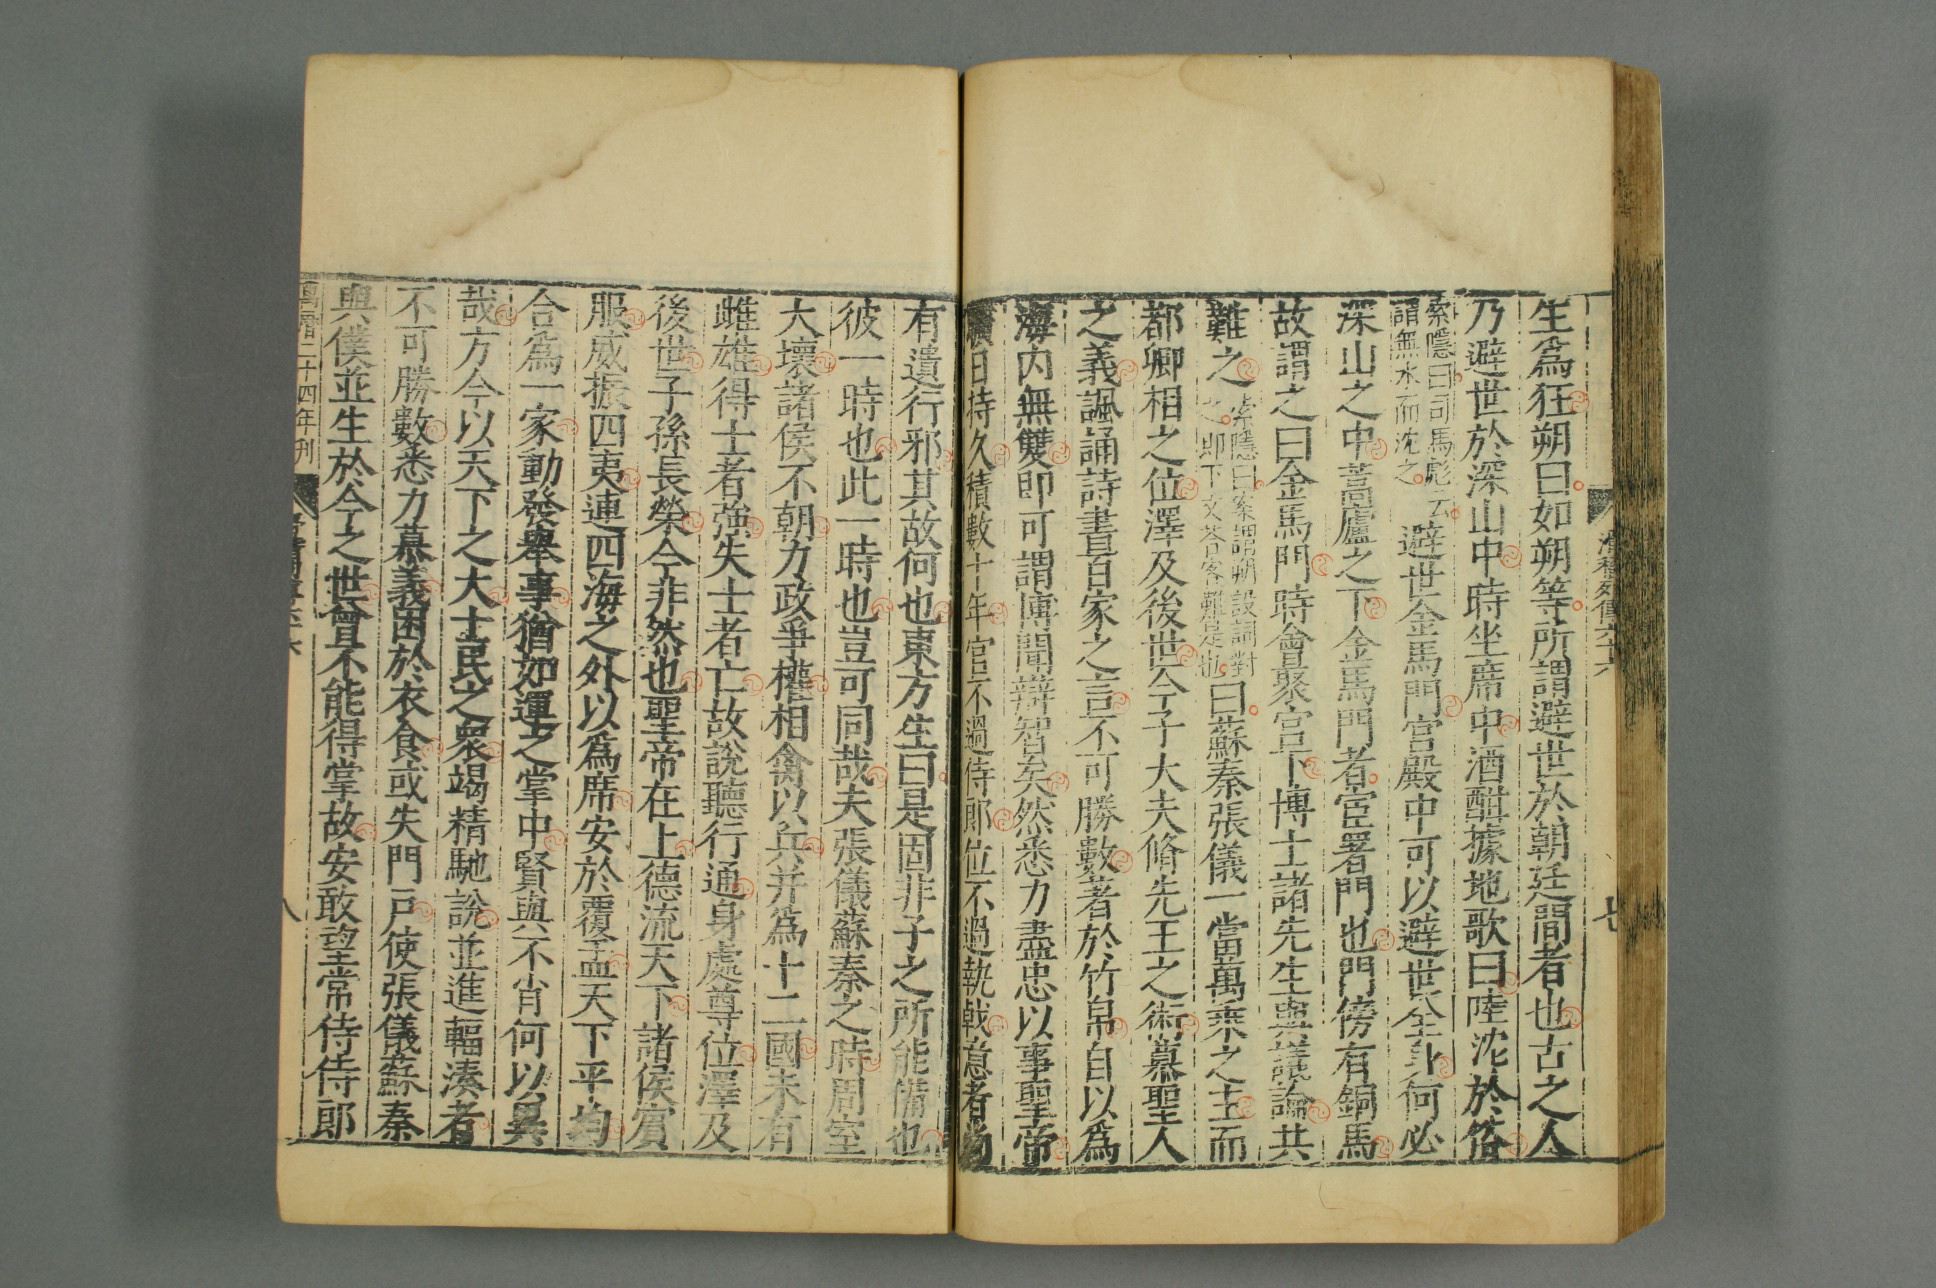 滑稽列傳六十六
七
生爲狂朔曰如朔等所謂避世於朝廷間者也古之人
乃避世於深山中時坐席中酒酣據地歌曰陸沈於俗
索隱曰司馬彪云
謂無水而沈之
避世金馬門宮殿中可以避世全身何必
深山之中蒿廬之下金馬門者宦署門也門傍有銅馬
故謂之曰金馬門時會聚宮下博士諸先生與議論共
難之
索隱曰案謂朔設詞對
之即下文荅客難是也
曰蘇秦張儀一當萬乘之主而
都卿相之位澤及後世今子大夫脩先王之術慕聖人
之義諷誦詩書百家之言不可勝數著於竹帛自以爲
海内無雙即可謂博聞辯智矣然悉力盡忠以事聖帝
曠日持久積數十年官不過侍郎位不過執戟意者尚
有遺行邪其故何也東方生曰是固非子之所能備也
彼一時也此一時也豈可同哉夫張儀蘇秦之時周室
大壞諸侯不朝力政爭權相禽以兵并爲十二國未有
雌雄得士者強失士者亡故說聽行通身處尊位澤及
後世子孫長榮今非然也聖帝在上德流天下諸侯賓
服威振四夷連四海之外以爲席安於覆盂天下平均
合爲一家動發舉事猶如運之掌中賢與不肖何以異
哉方今以天下之大士民之衆竭精馳說並進輻湊者
不可勝數悉力慕義困於衣食或失門戸使張儀蘇秦
與僕並生於今之世曾不能得掌故安敢望常侍侍郎
萬曆二十四年刊
八